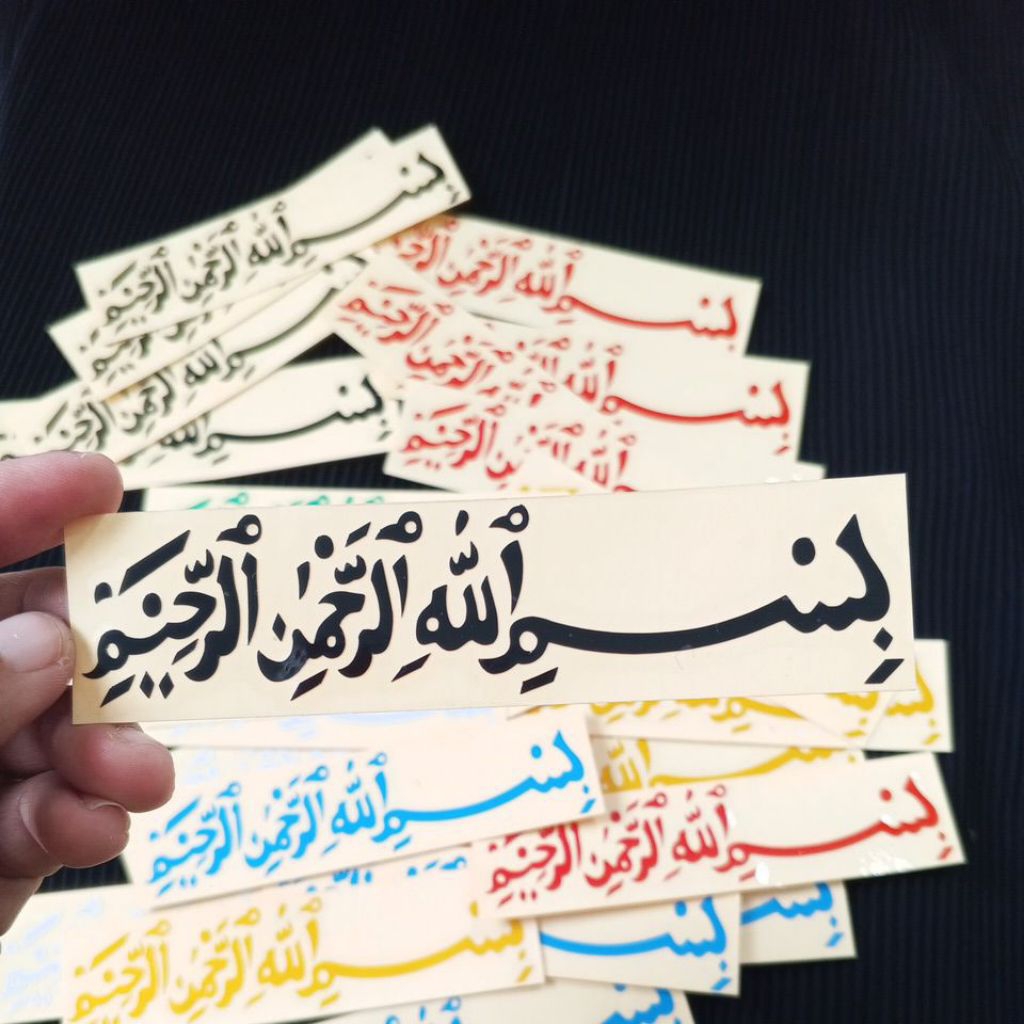 بِسْمِ ٱللَّهِ ٱلرَّحْمَٰنِ ٱلرَّحِيمِ
بِسْمِ ٱللَّهِ ٱلرَّحْمَٰنِ
بِسْمِ ٱللَّهِ ٱلرَّحْمَٰنِ ٱلرَّحِيمِ
بِسْمِ ٱللَّهِ ٱلرَّحْمَٰنِ ٱلرَّحِيمِ
بِسْمِ ٱللَّهِ ٱلرَّحْمَٰنِ ٱلرَّحِيمِ
بِسْمِ ٱللَّهِ ٱلرَّحْمَٰنِ ٱلرَّحِيمِ
بِسْمِ ٱللَّهِ ٱلرَّحْمَٰنِ ٱلرَّحِيمِ